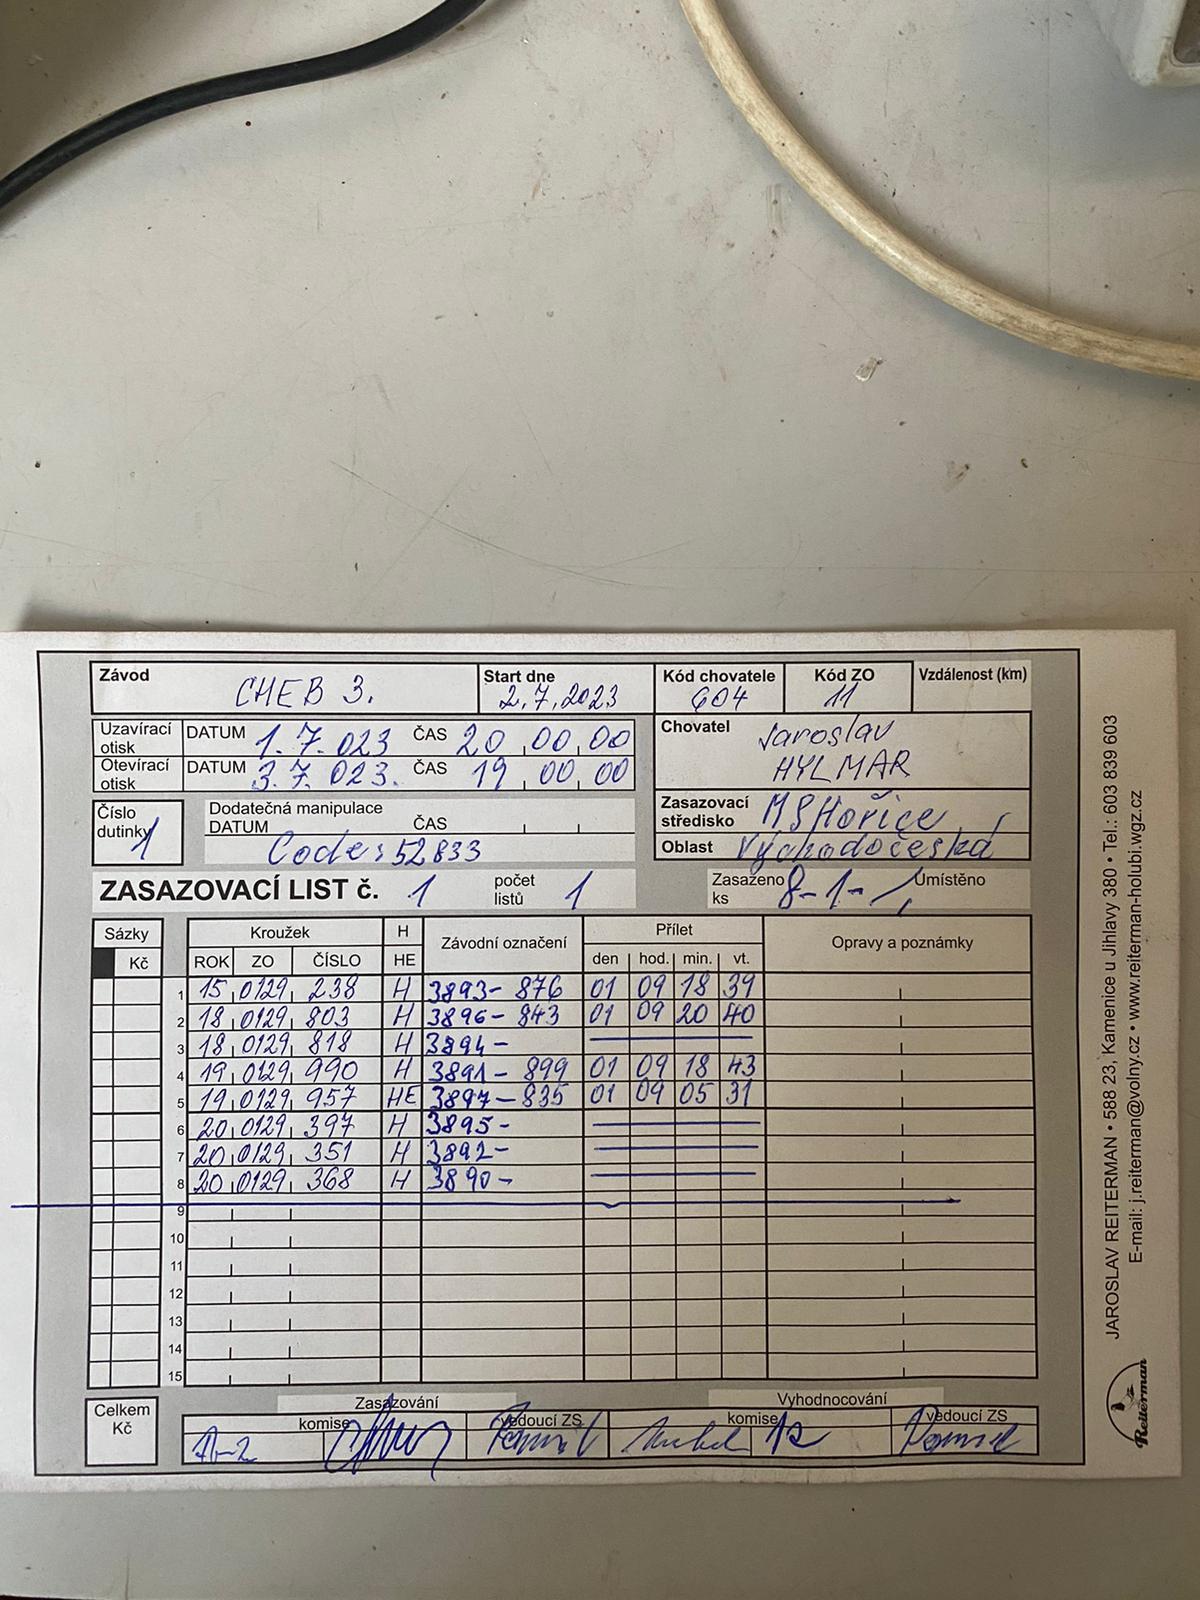 Závod CHEB 3. Start dne 2.7.2023 Kód chovatele 604 Kód ZO 11 Vzdálenost (km)
Uzavírací otisk DATUM 1.7.023 ČAS 20 00 00
Otevírací otisk DATUM 3.7.023. ČAS 19 00 00
Chovatel Jaroslav
HYLMAR
Číslo dutinky 1
Dodatečná manipulace
DATUM ČAS
Code: 52833
Zasazovací středisko MS Hořice
Oblast Východočeská
ZASAZOVACÍ LIST č. 1 počet listů 1 Zasaženo ks 8-1- Umístěno
Sázky Kroužek H Závodní označení Přílet Opravy a poznámky
Kč ROK ZO ČÍSLO HE den hod. min. vt.
1 15 0129 238 H 3893- 876 01 09 18 39
2 18 0129 803 H 3896- 843 01 09 20 40
3 18 0129 818 H 3894-
4 19 0129 990 H 3891- 899 01 09 18 43
5 19 0129 957 HE 3897- 835 01 09 05 31
6 20 0129 397 H 3895-
7 20 0129 351 H 3892-
8 20 0129 368 H 3890-
9
10
11
12
13
14
15
Celkem Kč
Zasazování Vyhodnocování
komise vedoucí ZS komise vedoucí ZS
JAROSLAV REITERMAN • 588 23, Kamenice u Jihlavy 380 • Tel.: 603 839 603
E-mail: j.reiterman@volny.cz • www.reiterman-holubi.wgz.cz
Reiterman